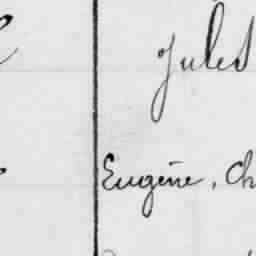 Jules
Eugène, Ch